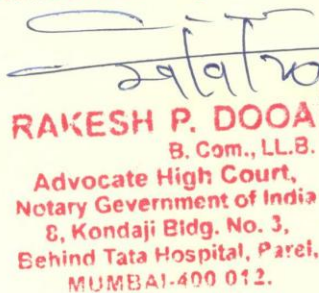 RAKESH P. DOOA
B. Com., LL.B.
Advocate High Court,
Notary Gevernment of India
8, Kondaji Bidg. No. 3,
Behind Tata Hospital, Parel,
MUMBAI-400 012.